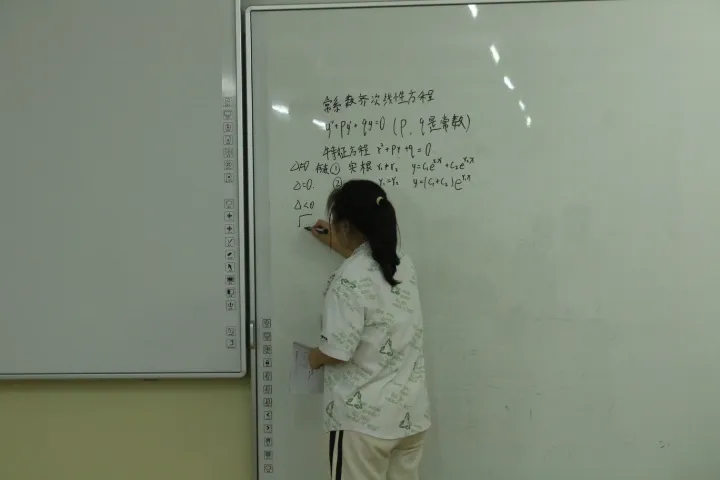 常系数齐次线性方程
y''+py'+qy=0 (p, q是常数)
特征方程 r²+pr+q=0
△≠0 ① 实根 r₁≠r₂ y=C₁e^{r₁x}+C₂e^{r₂x}
△=0 ② r₁=r₂ y=(C₁+C₂)e^{r₁x}
△<0